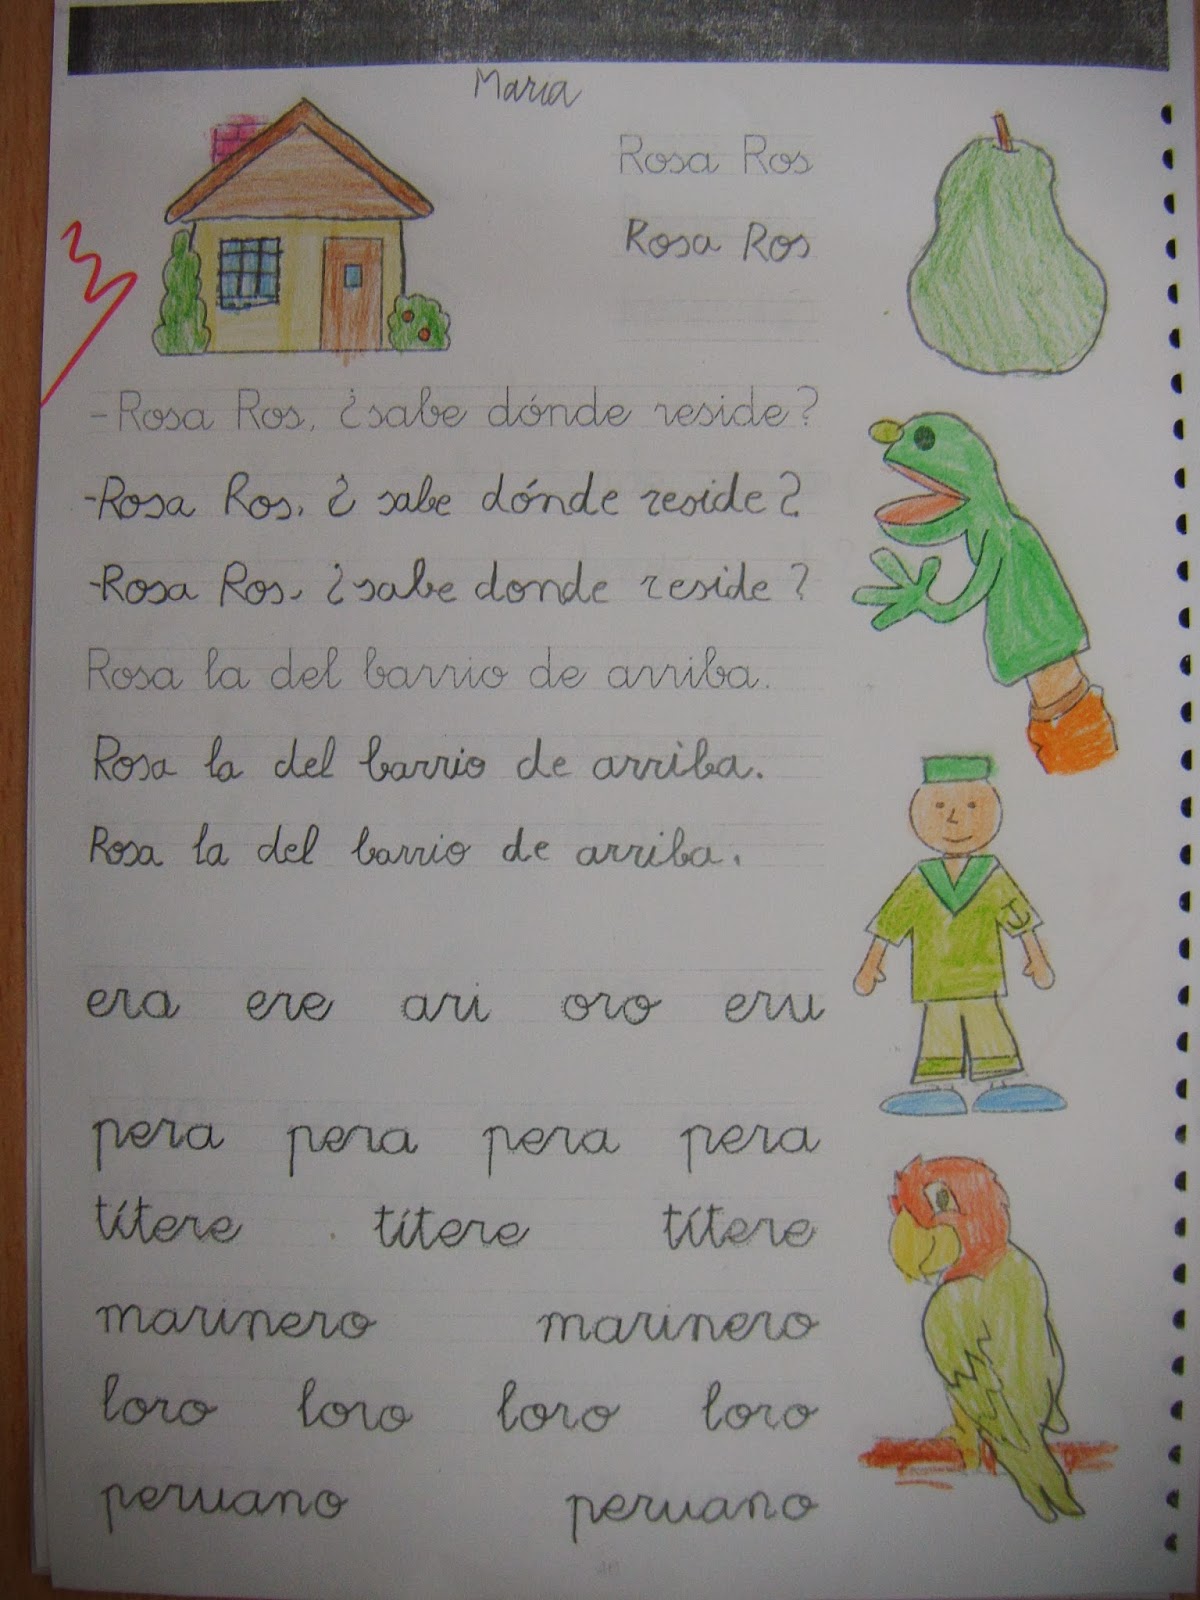 Maria
Rosa Ros
Rosa Ros
- Rosa Ros, ¿sabe dónde reside?
-Rosa Ros, ¿ sabe dónde reside?
-Rosa Ros, ¿sabe donde reside?
Rosa la del barrio de arriba.
Rosa la del barrio de arriba.
Rosa la del barrio de arriba.
era ere ari oro eru
pera pera pera pera
títere títere títere
marinero marinero
loro loro loro loro
peruano peruano